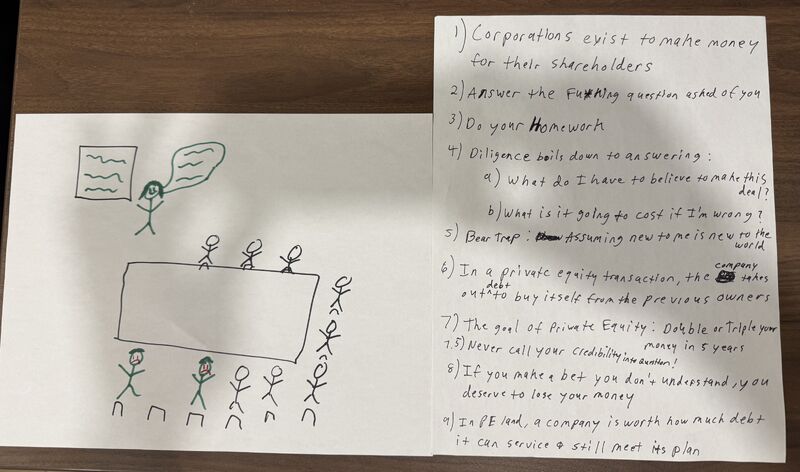 1) Corporations exist to make money
for their shareholders
2) Answer the Fu*king question asked of you
3) Do your Homework
4) Diligence boils down to answering:
a) What do I have to believe to make this
deal?
b) What is it going to cost if I'm wrong?
5) Bear Trap: Assuming new to me is new to the
world
6) In a private equity transaction, the company takes
out debt to buy itself from the previous owners
7) The goal of Private Equity: Double or Triple your
money in 5 years
7.5) Never call your credibility into question!
8) If you make a bet you don't understand, you
deserve to lose your money
9) In PE land, a company is worth how much debt
it can service & still meet its plan